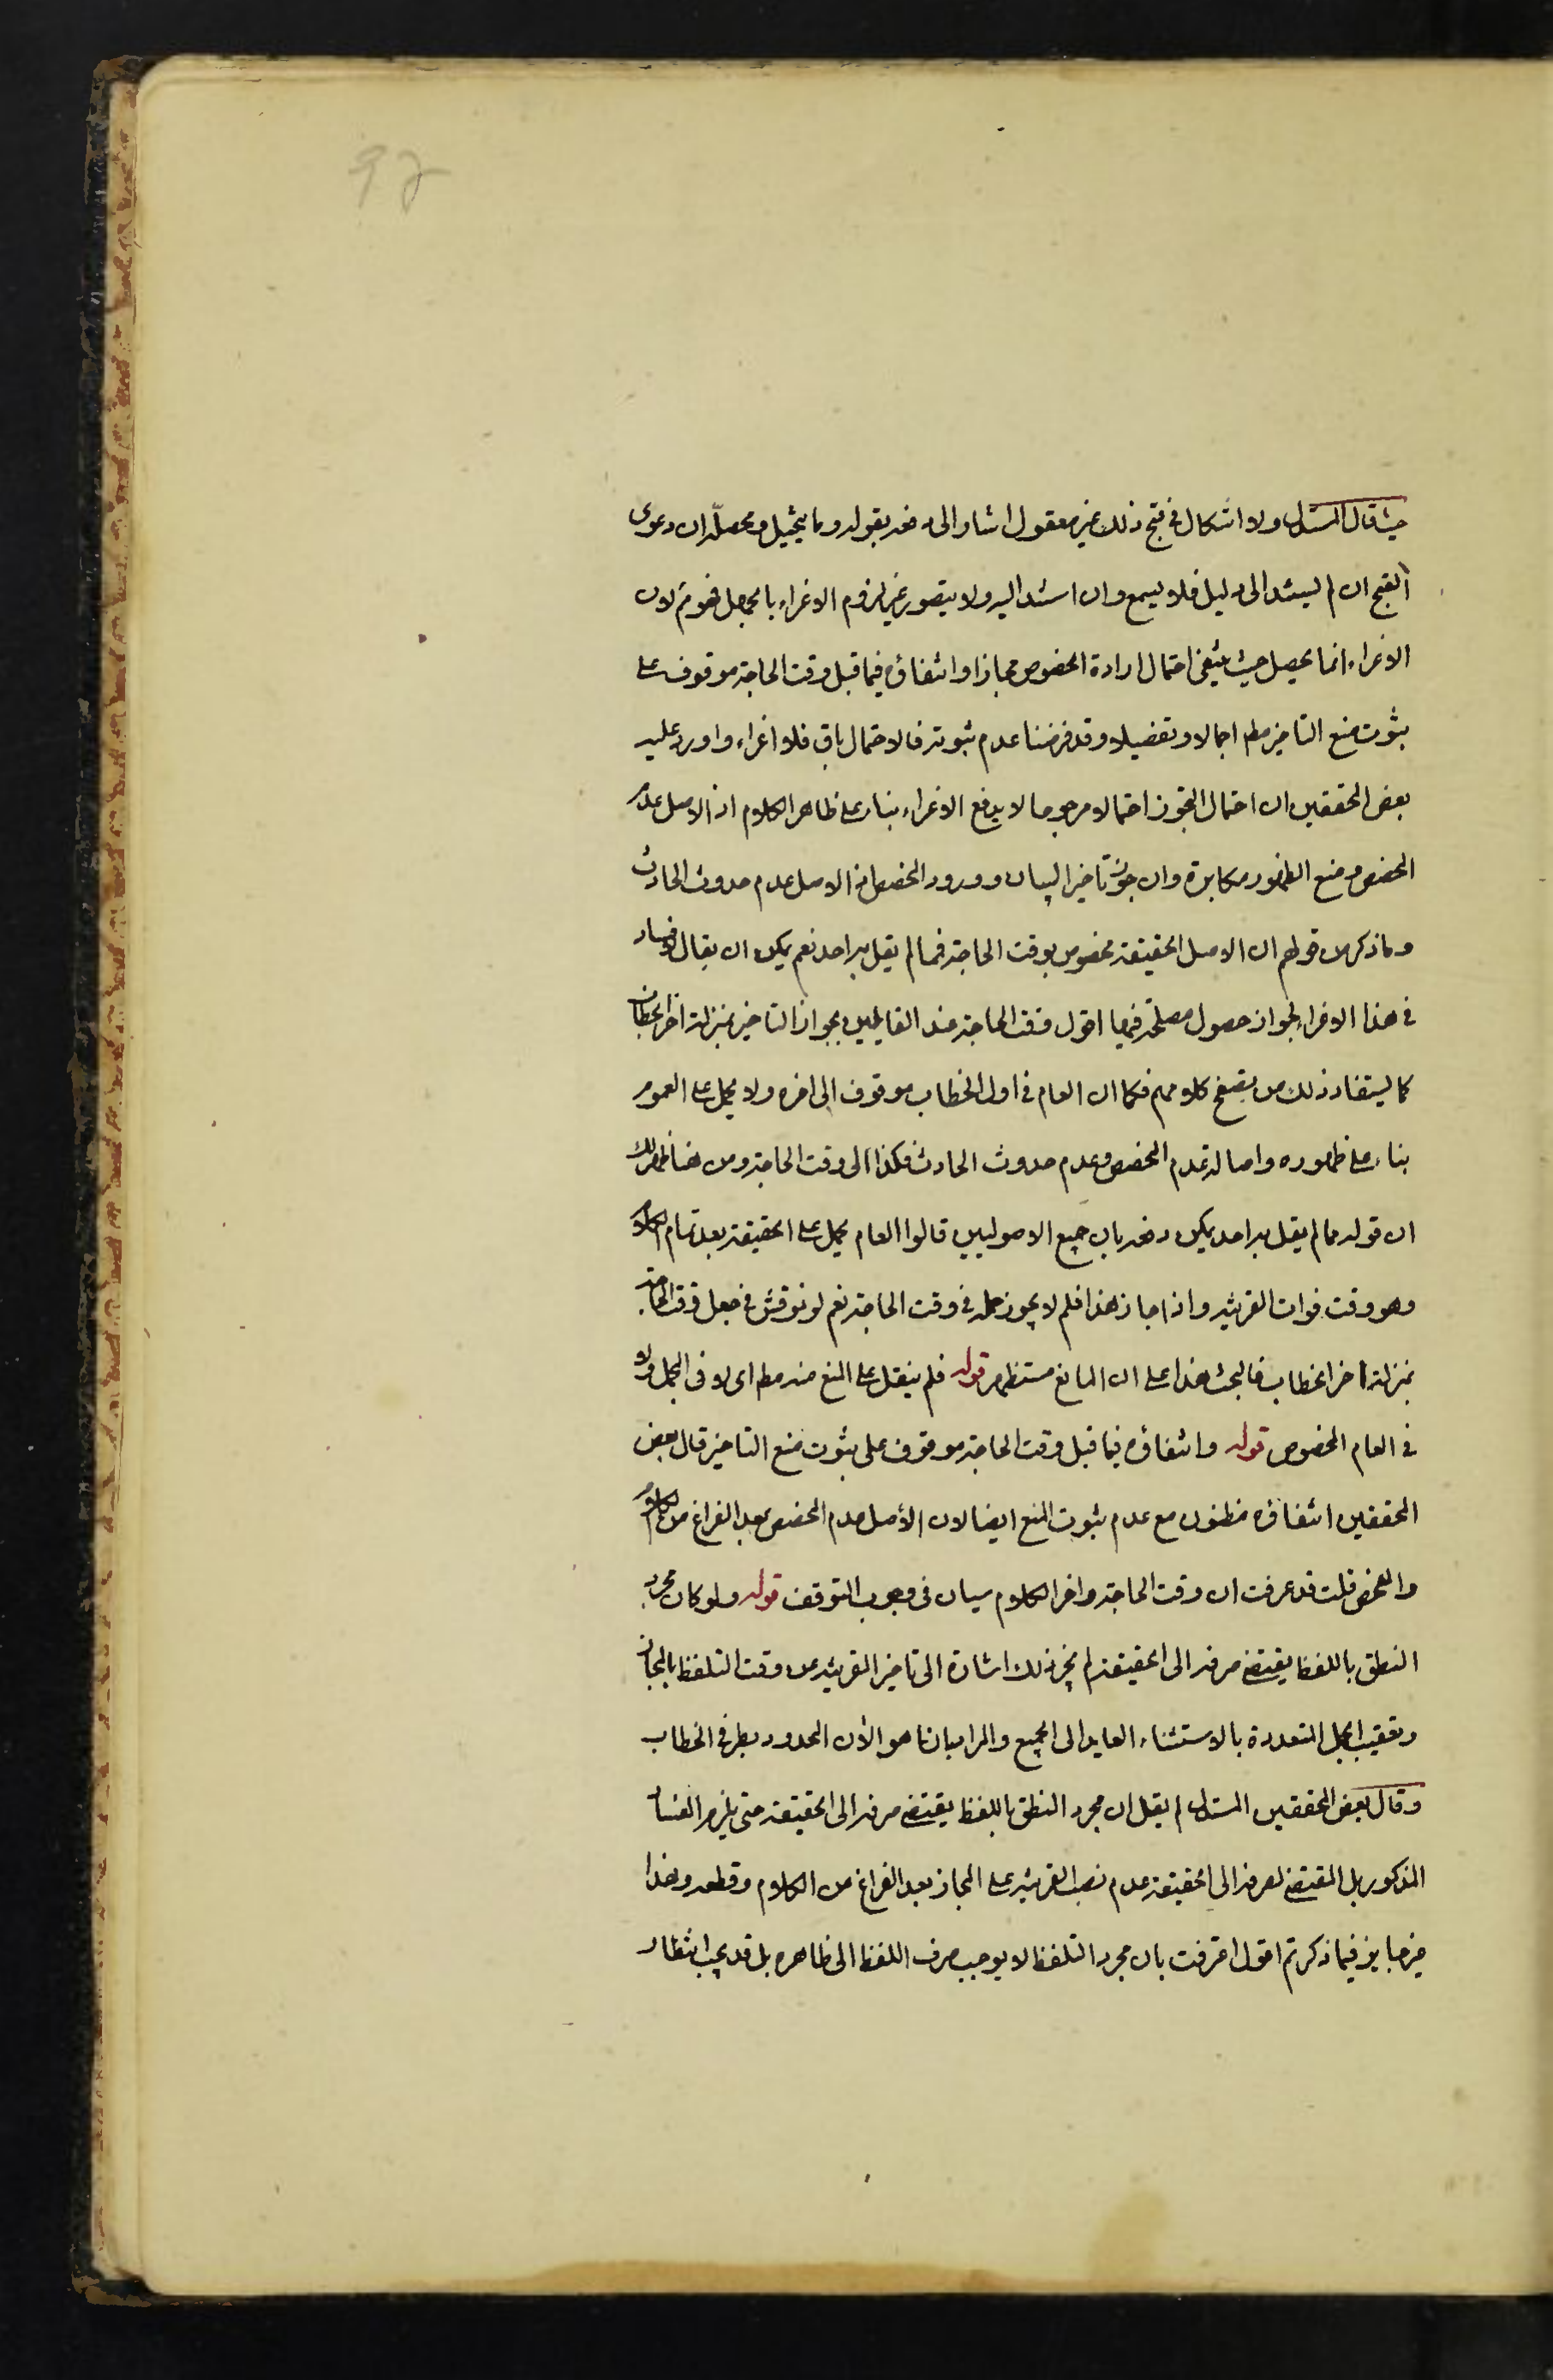 92
حيث قال المستدل ولا اشكال في قبح ذلك غير معقول اشار الى دفعه بقوله وما يتخيل ومحصله ان دعوى
القبح ان لم يستند الى دليل فلا يسمع وان استند اليه ولا يتصور غير لزوم الاغراء بالجهل فهو ثم لان
الاغراء انما يحصل حيث ينتفي احتمال ارادة الخصوص مجازا وانتفاؤه فيما قبل وقت الحاجة موقوف على
ثبوت منع التاخير مطم اجمالا وتفصيلا وقد فرضنا عدم ثبوته فالاحتمال باق فلا اغراء واورد عليه
بعض المحققين ان احتمال التجوز احتمالا مرجوحا لا يدفع الاغراء بناء على ظاهر الكلام اذ الاصل عدم
المخصص ومنع الظهور مكابرة وان جوز تاخير البيان وورود المخصص اذ الاصل عدم حدوث الحادث
وما ذكر من قولهم ان الاصل الحقيقة مخصوص بوقت الحاجة فمما لم يقل به احد نعم يمكن ان يقال لا فساد
في هذا الاغراء لجواز حصول مصلحة فيها اقول وقت الحاجة عند القايلين بجواز التاخير بمنزلة اخر الخطاب
كما يستفاد ذلك من تصفح كلامهم فكما ان العام في اول الخطاب موقوف الى اخره ولا يحمل على العموم
بناء على ظهوره واصالة عدم المخصص وعدم حدوث الحادث فكذا الى وقت الحاجة ومن هنا ظهر لك
ان قوله مما لم يقل به احد يمكن دفعه بان جميع الاصوليين قالوا العام يحمل على الحقيقة بعد تمام الكلام
وهو وقت فوات القرينة واذا جاز هذا فلم لا يجوز حمله في وقت الحاجة نعم لو نوقش في جعل وقت الحاجة
بمنزلة اخر الخطاب فالبحث هذا على ان المانع مستظهر قوله فلم ينقل على المنع منه مطم اى لا في المجمل ولا
في العام المخصوص قوله وانتفاؤه فيما قبل وقت الحاجة موقوف على ثبوت منع التاخير قال بعض
المحققين انتفاؤه مظنون مع عدم ثبوت المنع ايضا لان الأصل عدم المخصص بعد الفراغ من الكلام
والفحص قلت قد عرفت ان وقت الحاجة واخر الكلام سيان في وجوب التوقف قوله ولو كان مجرد
النطق باللفظ يقتضي صرفه الى الحقيقة لم يجز ذلك اشارة الى تاخير القرينة عن وقت التلفظ بالمجاز
وتعقيب الجمل المتعددة بالاستثناء العايد الى الجميع والمراد بان ما هو الان المحدود بطرفي الخطاب
وقال بعض المحققين المستدل لم يقل ان مجرد النطق باللفظ يقتضي صرفه الى الحقيقة حتى يلزم الفساد
المذكور بل المقتضي لصرفه الى الحقيقة عدم نصب القرينة على المجاز بعد الفراغ من الكلام وقطعه وهذا
غير جايز فيما ذكرتم اقول اعترفت بان مجرد التلفظ لا يوجب صرف اللفظ الى ظاهره بل قد يجب انتظار